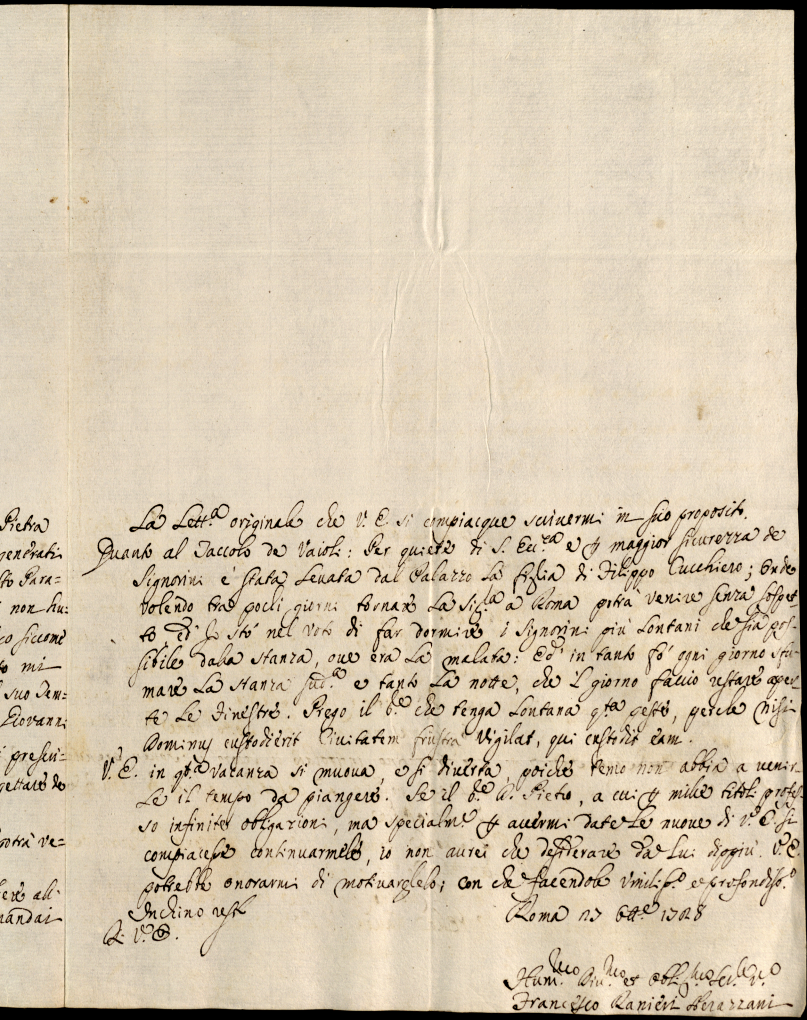 Pietra
generati
sto Para=
i non hu=
co siccome
to mi
l suo Dem=
Giovanni
i prescri=
gettare de
potrà ve=
ere all'
mandai
La Lett.ª originale che V. E. si compiacque scrivermi in suo proposito.
Quanto al Vaccolo de Vaioli: Per quiete di S. Ecc.za e p maggior sicurezza de
Signorini è stata Levata dal Palazzo La figlia di Filippo Cucchiero; onde
volendo tra pochi giorni tornare La Sig.ra a Roma potrà venire senza sospet=
to, ed Io stò nel Voto di far dormire i Signorini più Lontani che sia pos=
sibile dalla stanza, ove era La malata: Ed in tanto fò ogni giorno sfu=
mare La stanza sud.ª e tanto La notte, che il giorno faccio restare aper=
te Le Finestre. Prego il S.e che tenga Lontana q.ta peste, perche Nisi
Dominus custodierit Civitatem frustra Vigilat, qui custodit eam.
V. E. in q.ta Vacanza si muova, e si diverta, poiche temo non abbia a venir=
Le il tempo da piangere. Se il S.e D. Pietro, a cui p mille titoli profes=
so infinite obligazioni, ma specialm.e p avermi date Le nuove di V. E. si
compiacesse continuarmele, io non aurei che desiderare da Lui dippiù. V. E.
potrebbe onorarmi di motivarglielo; con che facendole Umiliss.º e profondiss.º
Inchino resto
D. V. E.
Roma 23 Ott.e 1728
Hum.mo Div.mo et Obl.mo Ser.re V.o
Francesco Ranieri